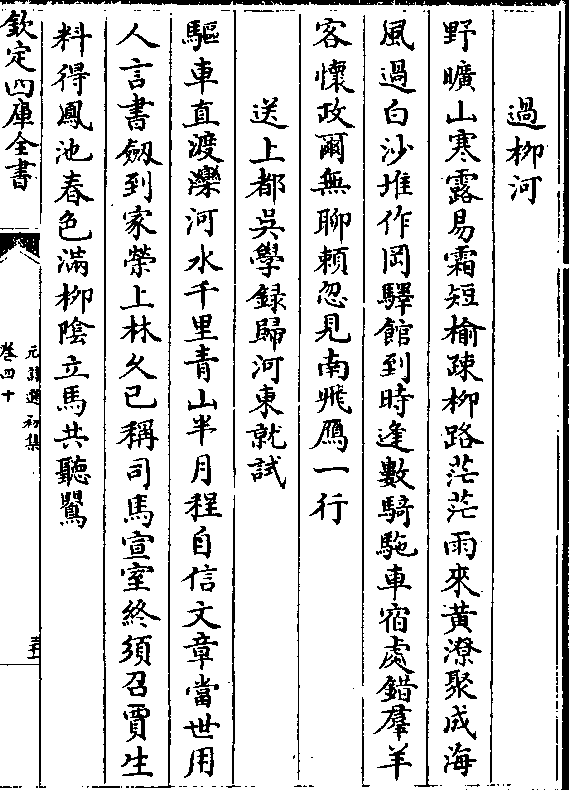 過柳河
野曠山寒露易霜短榆疎柳路茫茫雨來黃潦聚成海
風過白沙堆作岡驛館到時逢數騎駞車宿處錯羣羊
客懷政爾無聊頼忽見南飛鴈一行
送上都吳學録歸河東就試
驅車直渡灤河水千里青山半月程自信文章當世用
人言書劒到家榮上林久已稱司馬宣室終須召賈生
料得鳳池春色滿柳陰立馬共聽鸎
欽定四庫全書
元詩選初集
卷四十